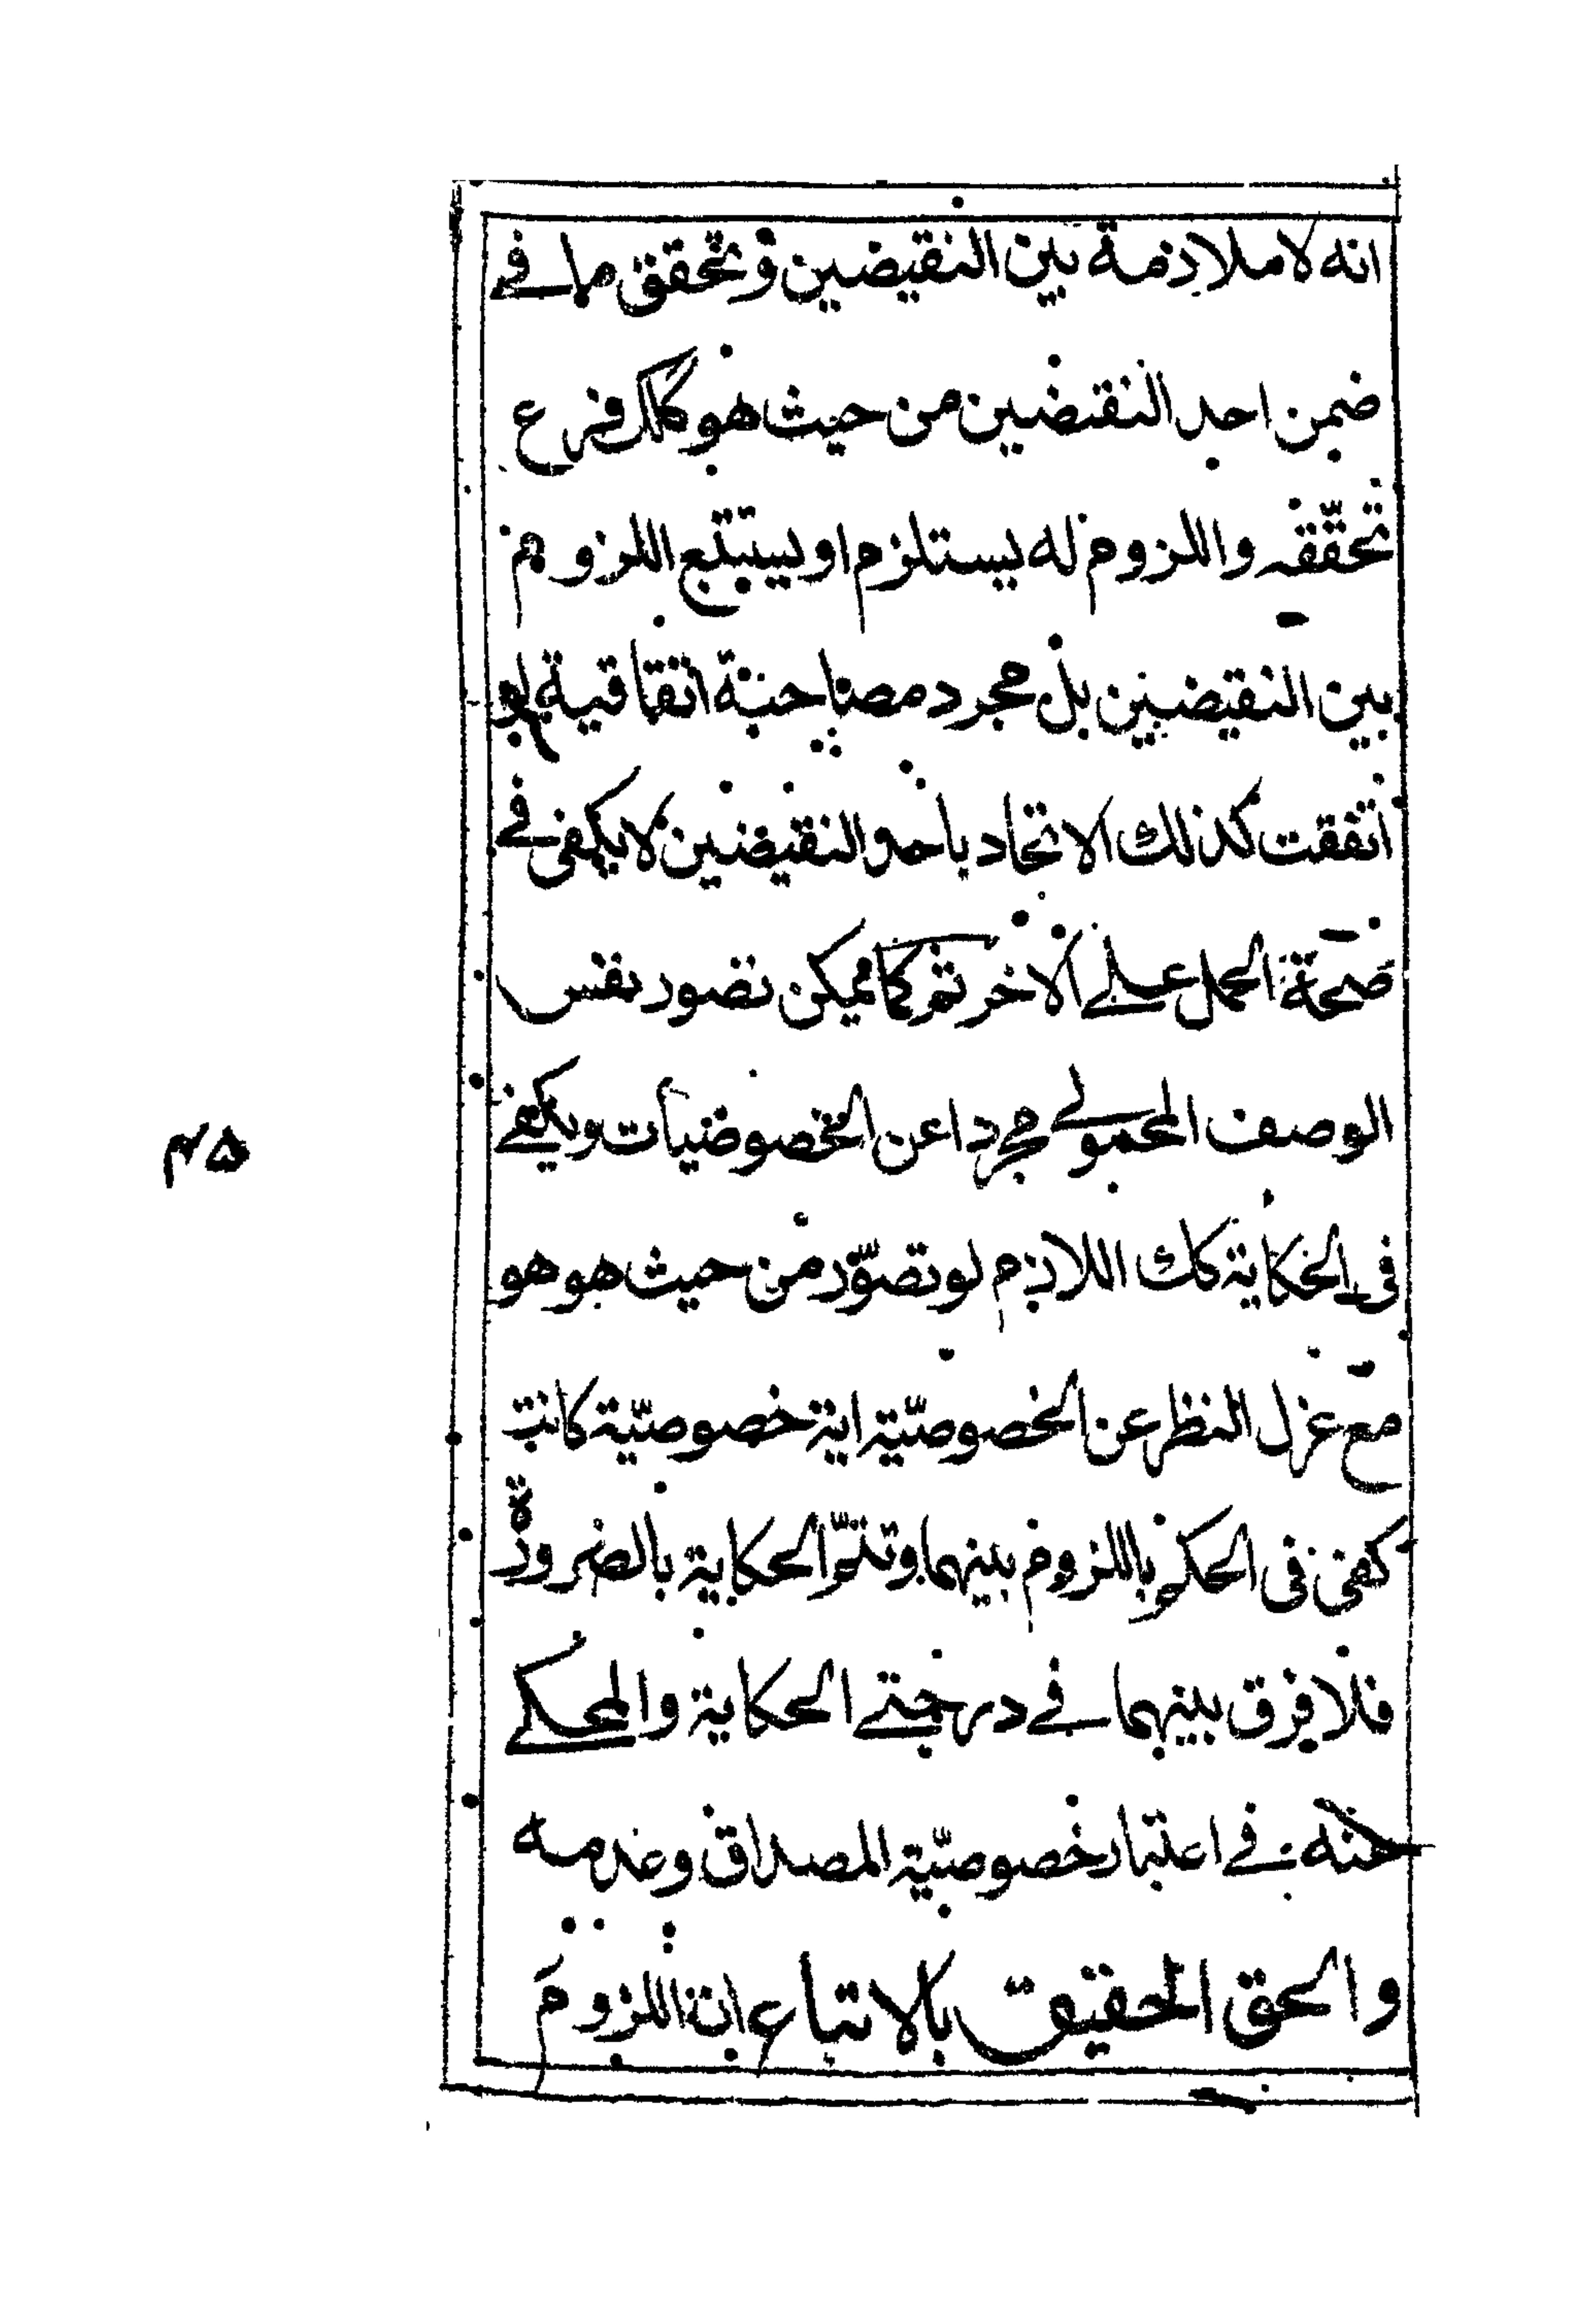 انه لا ملازمة بين النقيضين وتحقق ما في
ضمن احد النقيضين من حيث هو كك فرع
تحقّقه واللزوم له يستلزم او يستتبع اللزوم
بين النقيضين بل مجرد مصاحبة اتفاقية لو
اتفقت كذلك الاتحاد باحد النقيضين لا يكفى في
صحة الحمل على الاخر ثم كما يمكن تصور نفس
الوصف المحمولي مجردا عن الخصوصيات ويكفي
فى الحكاية كك اللازم لو تصوّر من حيث هو هو
مع عزل النظر عن الخصوصيّة اية خصوصيّة كانت
كفى فى الحكم باللزوم بينهما وتتمّ الحكاية بالضرورة
فلا فرق بينهما في درجتي الحكاية والمحكي
عنه في اعتبار خصوصيّة المصداق وعدمه
والحق الحقيق بالاتباع ان اللزوم
۴۵